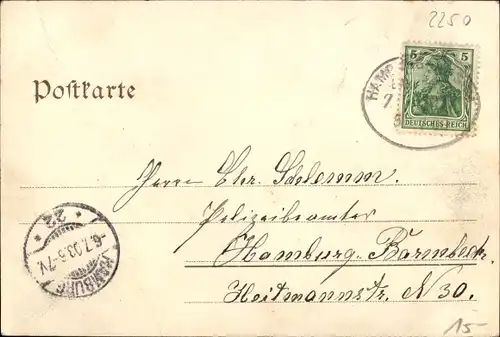 2250
5 5
HAMB
DEUTSCHES REICH
Postkarte
Herrn Chr. Schlemm.
Polizeibeamter
Hamburg-Barmbeck.
Heitmannstr. N 30.
* 22 *
6.7.03.6-7N.
HAMBURG
15-